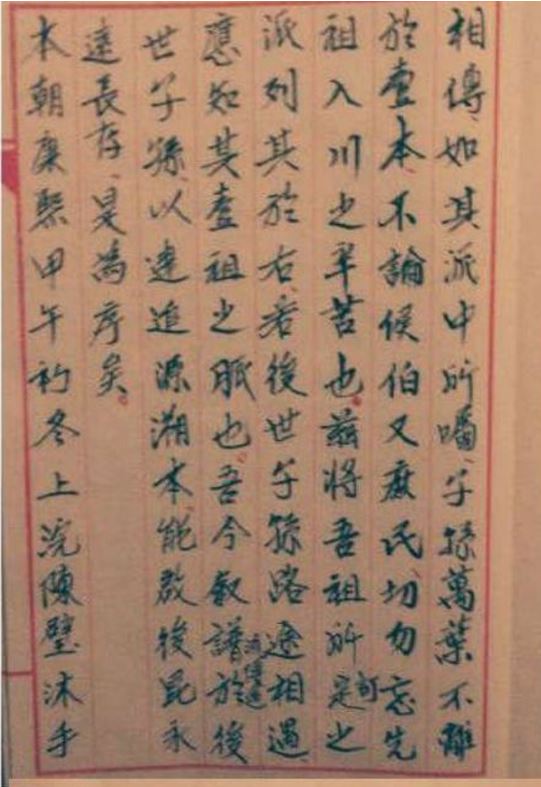 相傳、如其派中所囑、子孫萬葉不離
於壹本、不論侯伯又庶民、切勿忘先
祖入川之辛苦也。茲將吾祖所定之
派列其於右、若後世子孫路途相遇、
應知其壹祖之脈也。吾今叙譜於後
世子孫、以達追源溯本、能啟後昆永
遠長存、是為序矣。
本朝康熙甲午初冬上浣陳璧沐手